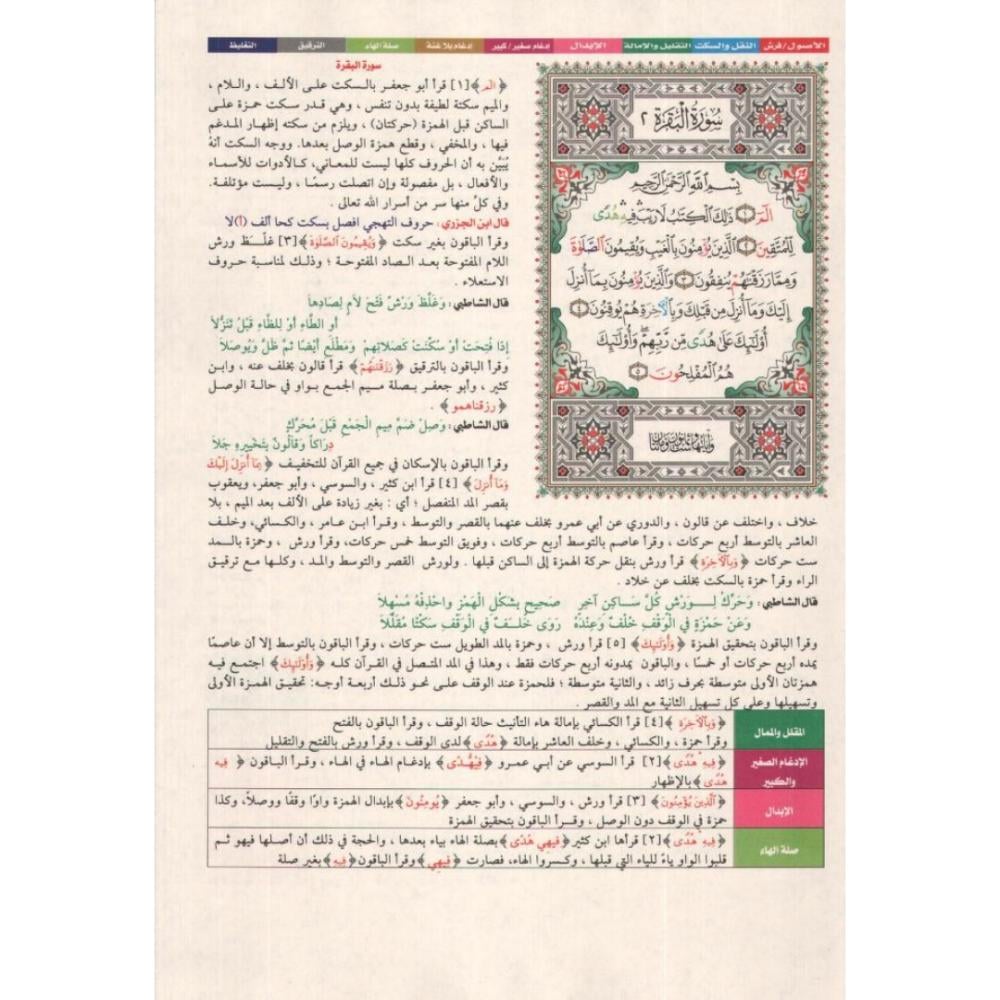 الأصول/فرش النقل والسكت التقليل والإمالة الإبدال إدغام صغير/كبير إدغام بلا غنة صلة الهاء الترقيق التغليظ
سُورَةُ الْبَقَرَةِ ٢
بِسْمِ اللَّهِ الرَّحْمَٰنِ الرَّحِيمِ
الٓمٓ ١ ذَٰلِكَ الْكِتَٰبُ لَا رَيْبَ فِيهِ هُدًى
لِّلْمُتَّقِينَ ٢ الَّذِينَ يُؤْمِنُونَ بِالْغَيْبِ وَيُقِيمُونَ الصَّلَوٰةَ
وَمِمَّا رَزَقْنَٰهُمْ يُنفِقُونَ ٣ وَالَّذِينَ يُؤْمِنُونَ بِمَا أُنزِلَ
إِلَيْكَ وَمَا أُنزِلَ مِن قَبْلِكَ وَبِالْآخِرَةِ هُمْ يُوقِنُونَ ٤
أُولَٰئِكَ عَلَىٰ هُدًى مِّن رَّبِّهِمْ وَأُولَٰئِكَ
هُمُ الْمُفْلِحُونَ ٥
سورة البقرة
﴿الم﴾[١] قرأ أبو جعفر بالسكت على الألف ، واللام ،
والميم سكتة لطيفة بدون تنفس ، وهي قدر سكت حمزة على
الساكن قبل الهمزة (حركتان) ، ويلزم من سكته إظهار المدغم
فيها ، والمخفي ، وقطع همزة الوصل بعدها. ووجه السكت أنهُ
يُبَيِّن به أن الحروف كلها ليست للمعاني، كـالأدوات للأسماء
والأفعال ، بل مفصولة وإن اتصلت رسمًا ، وليست مؤتلفة.
وفي كلٍّ منها سر من أسرار الله تعالى .
قال ابن الجزري: حروف التهجي افصل بسكت كحا ألف (أ)لا
وقرأ الباقون بغير سكت ﴿وَيُقِيمُونَ الصَّلَوٰةَ﴾[٣] غلَّـظ ورش
اللام المفتوحة بعـد الصاد المفتوحة ؛ وذلك لمناسبة حروف
الاستعلاء .
قال الشاطبي: وَغَلَّظَ وَرْشٌ فَتْحَ لاَمٍ لِصَادِهاَ
أو الطَّاءِ أوْ لِلظَّاءِ قَبْلُ تَنَزُّلاَ
إذَا فُتِحَتْ أوْ سُكِّنَتْ كَصَلاتِهِمْ وَمَطْلَعِ أيْضًا ثمَّ ظَلَّ وَيُوصَلاَ
وقرأ الباقون بالترقيق ﴿رَزَقْنَٰهُمْ﴾ قرأ قالون بخلف عنه ، وابـن
كثير ، وأبو جعفر بـصلة مـيم الجمـع بـواو في حالـة الوصل
﴿رزقناهمو﴾ .
قال الشاطبي: وَصِلْ ضَمَّ مِيمِ الْجَمْعِ قَبْلَ مُحَرَّكٍ
دِرَاكًا وَقَالُونٌ بتَخْيِيرِهِ جَلاَ
وقرأ الباقون بالإسكان في جميع القرآن للتخفيـف ﴿بِمَا أُنزِلَ إِلَيْكَ
وَمَا أُنزِلَ﴾ [٤] قرأ ابن كثير ، والسوسي ، وأبو جعفر، ويعقوب
بقصر المد المنفصل ؛ أي : بغير زيادة على الألف بعد الميم ، بلا
خلاف ، واختلف عن قالون ، والدوري عن أبي عمرو بخلف عنهما بالقصر والتوسط ، وقـرأ ابـن عـامر ، والكسائي، وخلـف
العاشر بالتوسط أربع حركات ، وقرأ عاصم بالتوسط أربع حركات ، وفويق التوسط خمس حركات، وقرأ ورش ، وحمزة بالـمد
ست حركات ﴿وَبِالْآخِرَةِ﴾ قرأ ورش بنقل حركة الهمزة إلى الساكن قبلها . ولورش القصر والتوسط والمـد ، وكلـها مـع ترقيـق
الراء وقرأ حمزة بالسكت بخلف عن خلاد .
قال الشاطبي: وَحَرِّكْ لِـوَرْشٍ كُلَّ سَـاكِنٍ آخِرٍ صَحِيحٍ بِشَكْلِ الْهَمْزِ وَاحْذِفْهُ مُسْهِلاَ
وَعَنْ حَمْزَةٍ فِي الْوَقْفِ خُلْفٌ وَعِنْدَهُ رَوَى خَلَـفٌ فِي الْوَقْفِ سَكْتًا مُقَلَّلاَ
وقرأ الباقون بتحقيق الهمزة ﴿وَأُولَٰئِكَ﴾ [٥] قرأ ورش ، وحمزة بالمد الطويل ست حركات ، وقرأ الباقون بالتوسط إلا أن عاصمًا
يمده أربع حركات أو خمسًا ، والباقون يمدونه أربع حركات فقط ، وهذا في المد المتـصل في القـرآن كلـه ﴿وَأُولَٰئِكَ﴾ اجتمـع فيـه
همزتان الأولى متوسطة بحرف زائد ، والثانية متوسطة ؛ فلحمزة عند الوقف علـى نحـو ذلـك أربعـة أوجـه: تحقيـق الهمـزة الأولى
وتسهيلها وعلى كل تسهيل الثانية مع المد والقصر .
المقلل والممال
﴿وَبِالْآخِرَةِ﴾[٤] قرأ الكسائي بإمالة هاء التأنيث حالة الوقف ، وقرأ الباقون بالفتح
وقرأ حمزة ، والكسائي ، وخلف العاشر بإمالة ﴿هُدًى﴾لدى الوقف ، وقرأ ورش بالفتح والتقليل
الإدغام الصغير والكبير
﴿فِيهِ هُدًى﴾[٢] قرأ السوسي عن أبي عمرو ﴿فِيهُّدًى﴾بإدغام الهـاء في الهـاء ، وقـرأ البـاقون ﴿فِيهِ
هُدًى﴾بالإظهار
الإبدال
﴿الَّذِينَ يُؤْمِنُونَ﴾ [٣] قرأ ورش ، والسوسي ، وأبو جعفر ﴿يُومِنُونَ﴾بإبدال الهمزة واوًا وقفًا ووصلاً، وكذا
حمزة في الوقف دون الوصل ، وقـرأ الباقون بتحقيق الهمزة
صلة الهاء
﴿فِيهِ هُدًى﴾[٢] قرأها ابن كثير﴿فِيهِي هُدًى﴾بصلة الهاء بياء بعدها ، والحجة في ذلك أن أصلها فيهو ثـم
قلبوا الواو ياءً للياء التي قبلها ، وكسـروا الهاء، فصارت ﴿فِيهِي﴾وقرأ الباقون﴿فِيهِ﴾بغير صلة